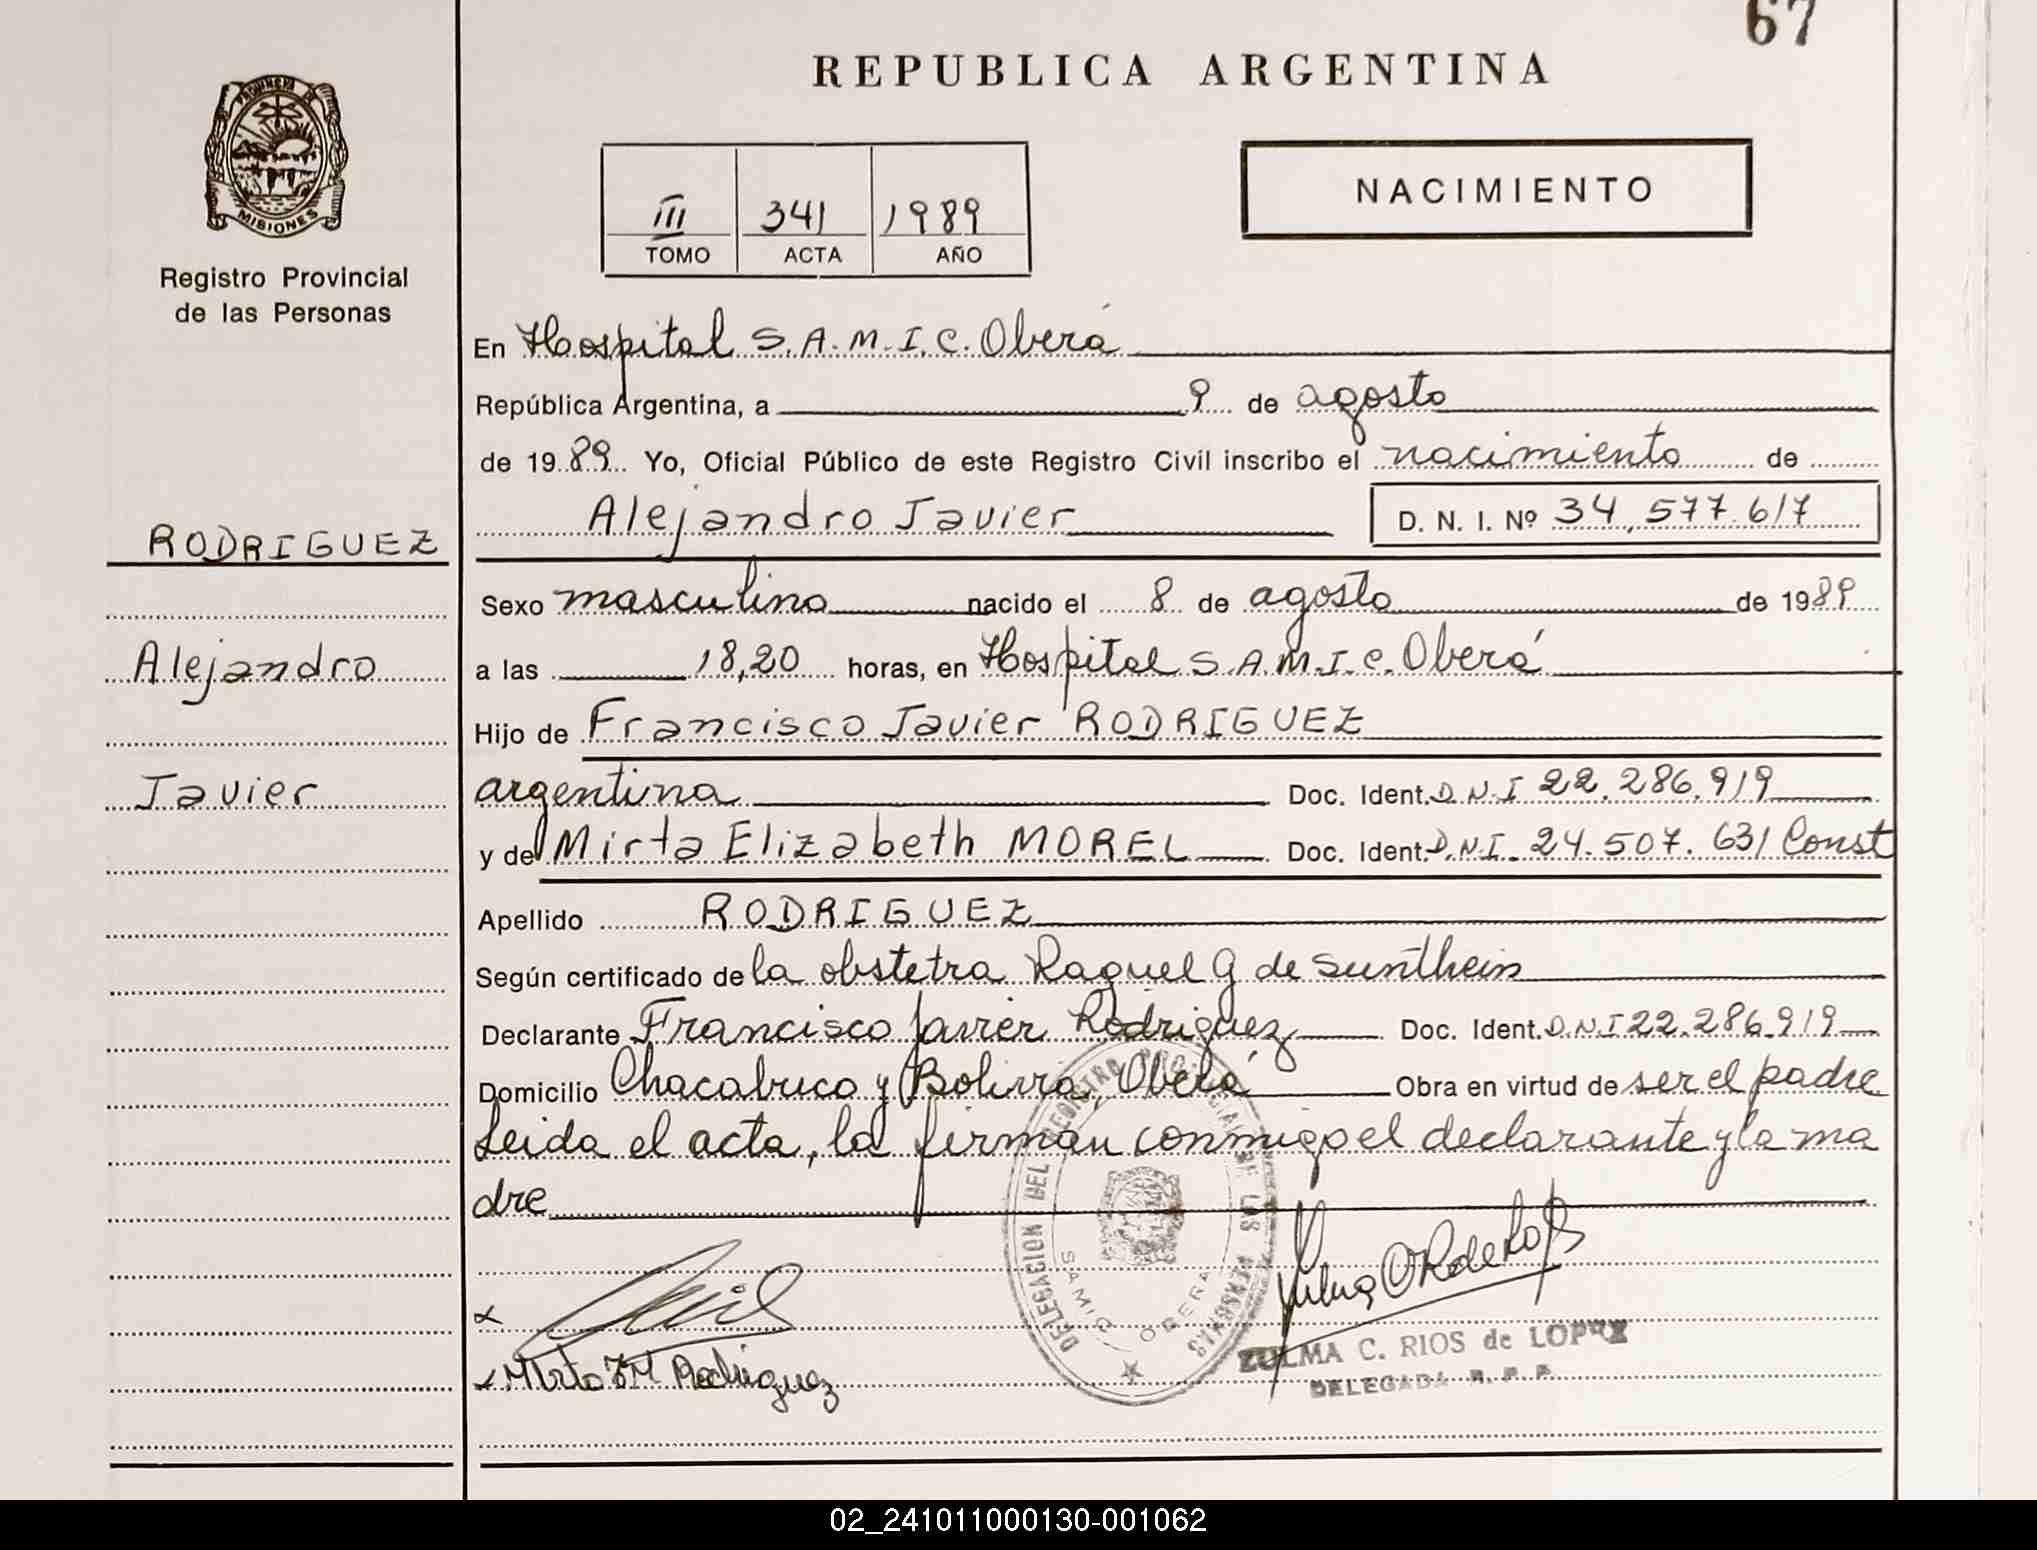 67
REPUBLICA ARGENTINA
PROVINCIA DE
MISIONES
Registro Provincial
de las Personas
III 341 1989
TOMO ACTA AÑO
NACIMIENTO
En Hospital S.A.M.I.C. Oberá
República Argentina, a 9 de agosto
de 1989 Yo, Oficial Público de este Registro Civil inscribo el nacimiento de
Alejandro Javier D. N. I. Nº 34.577.617
RODRIGUEZ
Sexo masculino nacido el 8 de agosto de 1989
Alejandro
a las 18,20 horas, en Hospital S.A.M.I.C. Oberá
Hijo de Francisco Javier RODRIGUEZ
Javier
argentina Doc. Ident. D.N.I 22.286.919
y de Mirta Elizabeth MOREL Doc. Ident. D.N.I. 24.507.631 Const
Apellido RODRIGUEZ
Según certificado de la obstetra Raquel G de Sunthein
Declarante Francisco Javier Rodriguez Doc. Ident. D.N.I 22.286.919
Domicilio Chacabuco y Bolivia, Oberá Obra en virtud de ser el padre
Leida el acta, la firman conmigo el declarante y la ma
dre
DELEGACION DEL REGISTRO PROVINCIAL DE LAS PERSONAS
SAMIC OBERA
Mirta E M Rodriguez
ZULMA C. RIOS de LOPEZ
DELEGADA R. P. P.
02_241011000130-001062